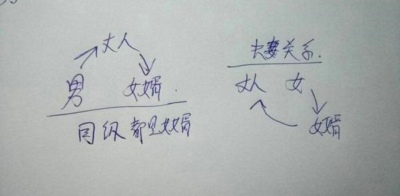 丈人
男 女婿
同级都是女婿
夫妻关系
丈人 女
女婿